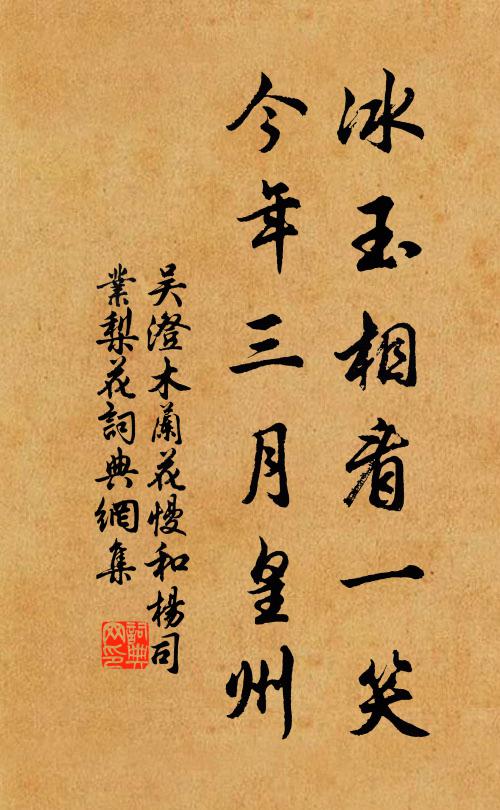 冰玉相看一笑
今年三月皇州
吴澄木蘭花慢和楊司
業梨花詞典網集
詞典網印